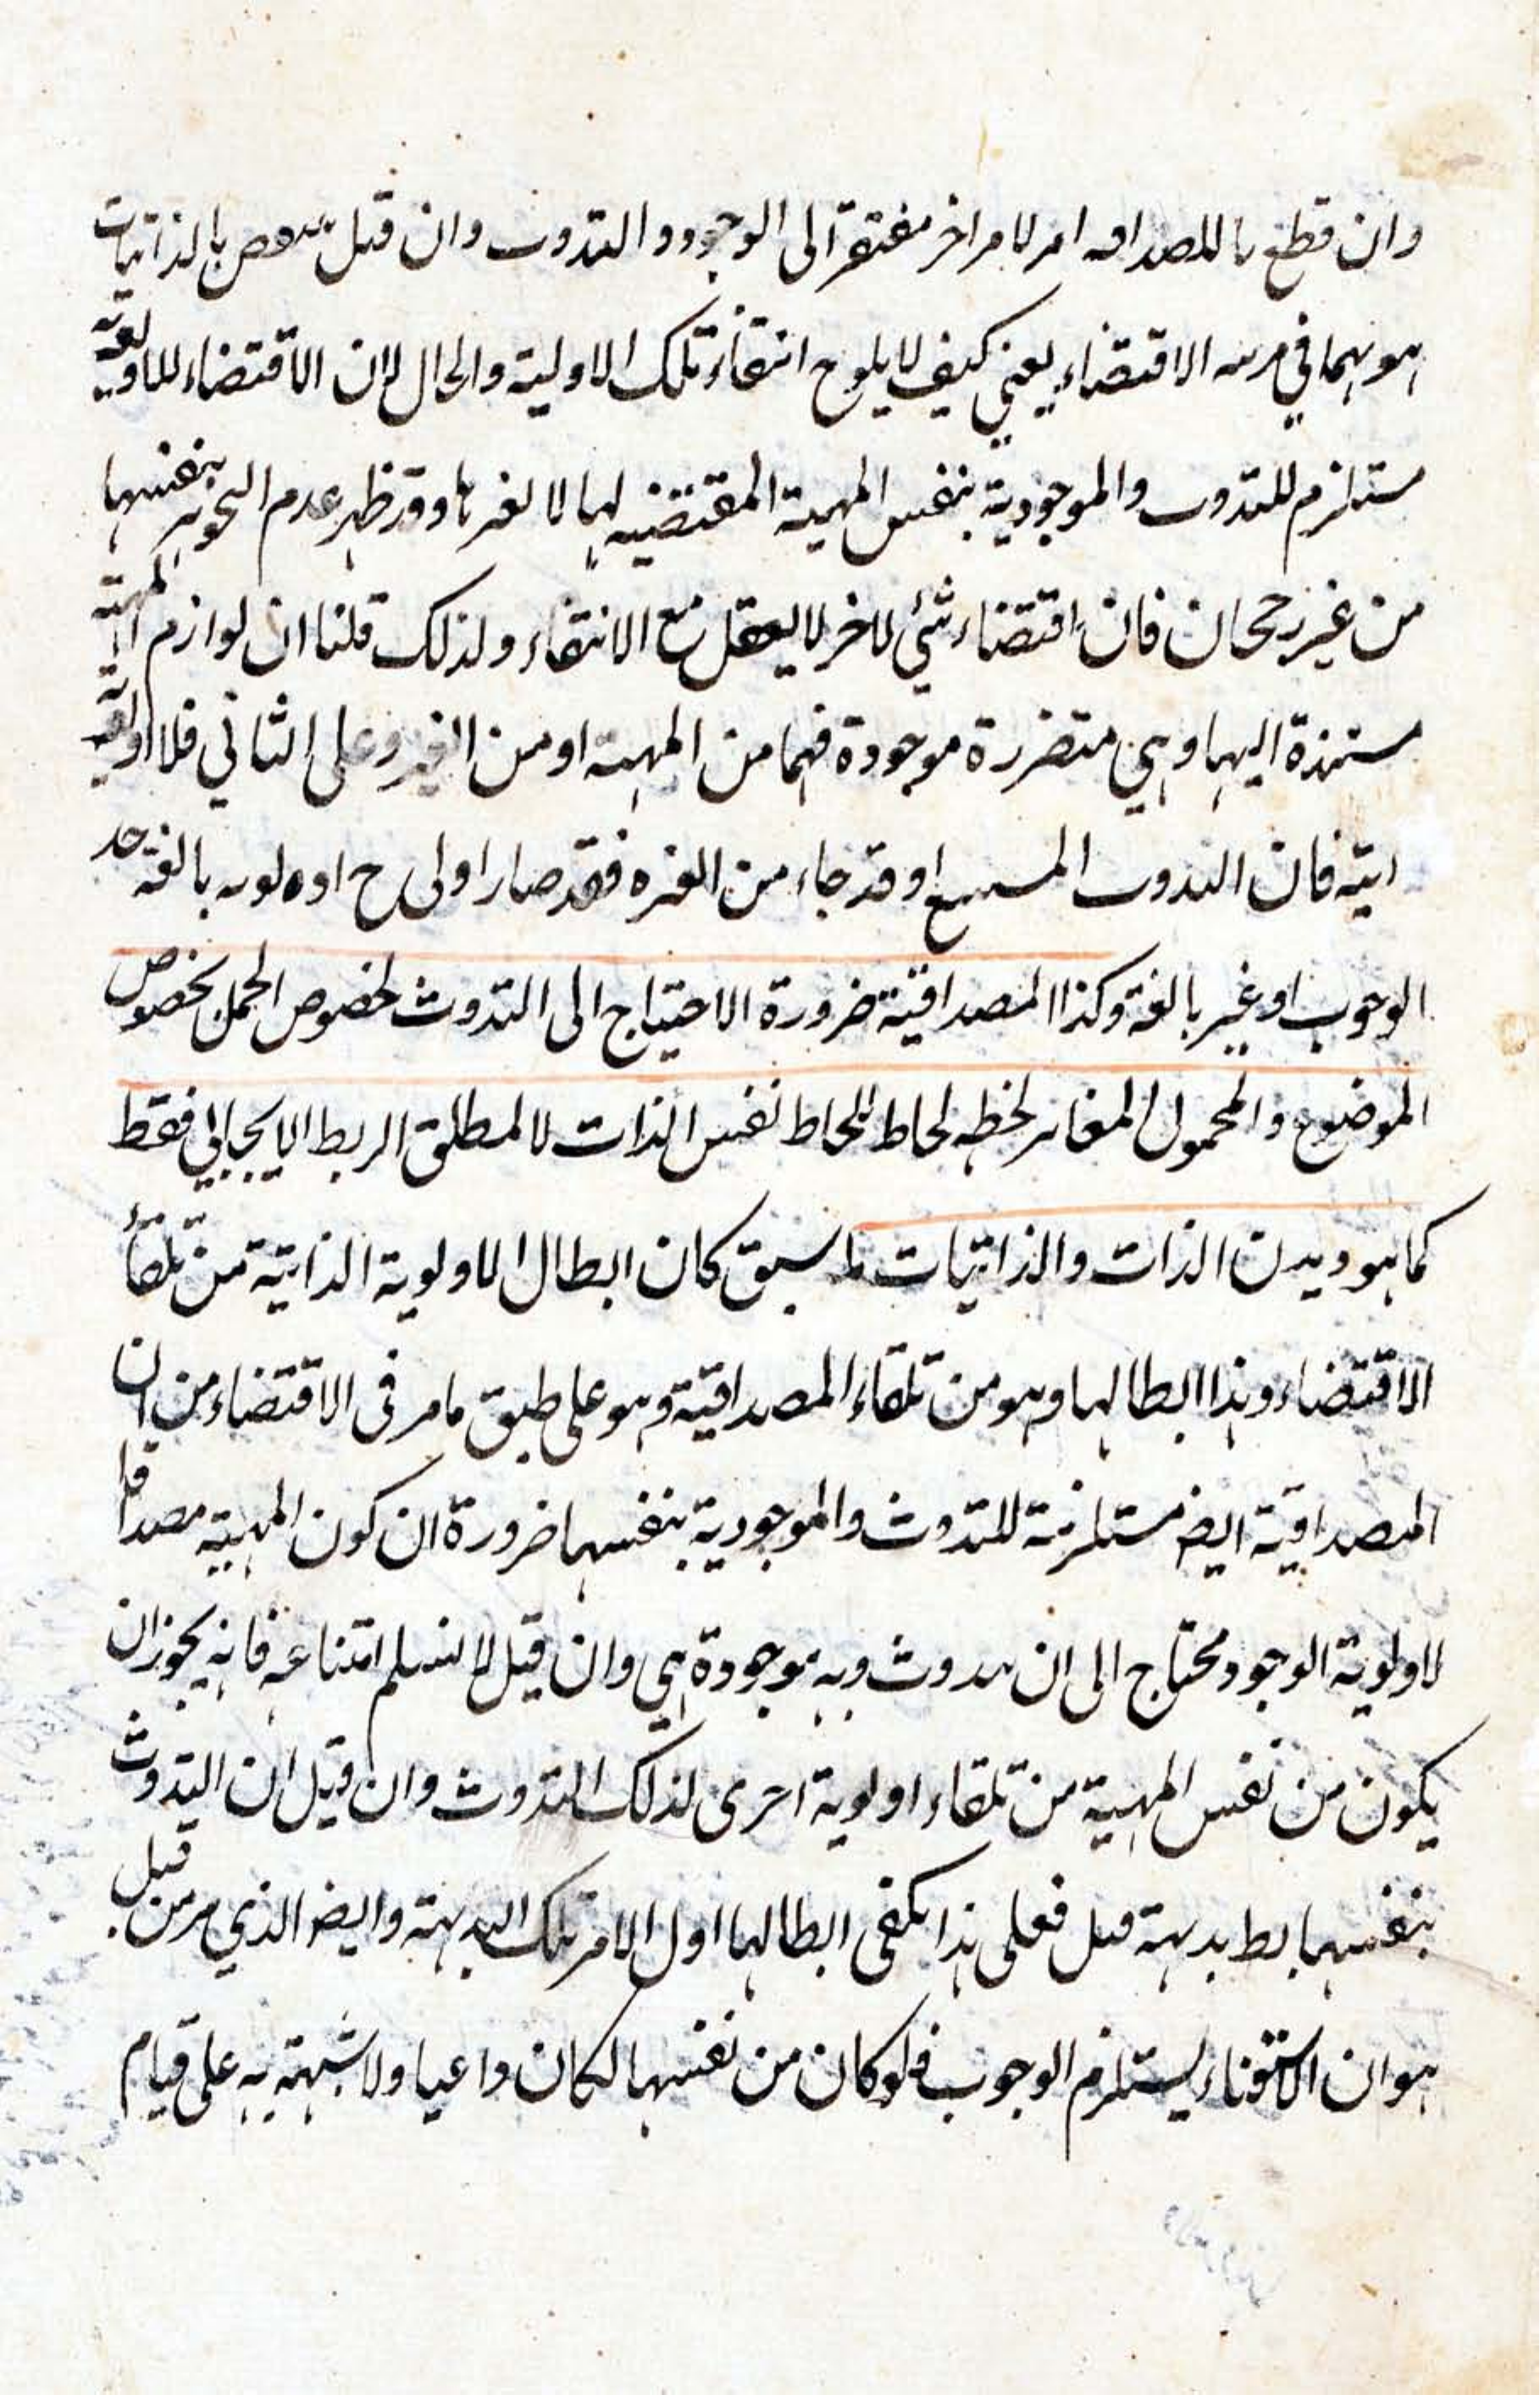 وان قطع بالمصداقية امر لامر اخر مفتقرة الى الوجود والتذوت وان قيل ينقض بالذاتيات
في مرتبة الاقتضاء يعني كيف لا يلوح انتفاء تلك الاولية والحال لان الاقتضاء للاولوية
مستلزم للتذوت والموجودية بنفس المهية المقتضيه لها لا لغيرها وقد ظهر عدم التجوهر بنفسها
من غير رجحان فان اقتضاء شئي لاخر لا يعقل مع الانتفاء ولذلك قلنا ان لوازم المهية
مستندة اليها وهي متقررة موجودة فهما من المهية او من الغير وعلى الثاني فلا اولوية
اتية فان التذوت وقد جاء من الغير فقد صار اولى ح اولويه بالغة حد
الوجوب او غير بالغة وكذا المصداقية ضرورة الاحتياج الى التذوت لخصوص الحمل بخصوص
الموضوع والمحمول المغاير لحظه لحاظ للحاظ نفس الذات لا لمطلق الربط الايجابي فقط
كما هو ديدن الذات والذاتيات لما سبق كان ابطال الاولوية الذاتية من تلقاء
الاقتضاء وهذا ابطالها وهو من تلقاء المصداقية وهو على طبق ما مر في الاقتضاء من ان
المصداقية ايض مستلزمة للتذوت والموجودية بنفسها ضرورة ان كون المهية مصداقا
لاولوية الوجود محتاج الى ان تذوت وبه موجودة هي وان قيل لا نسلم امتناعه فانه يجوز ان
يكون من نفس المهية من تلقاء اولوية اخرى لذلك التذوت وان قيل ان التذوت
بنفسها بط بديهة قيل فعلى هذا يكفى ابطالها اول الامر تلك البديهة وايض الذي مر من قبل
هو ان يستلزم الوجوب فلو كان من نفسها لكان واعيا ولا شبهة به على قيام